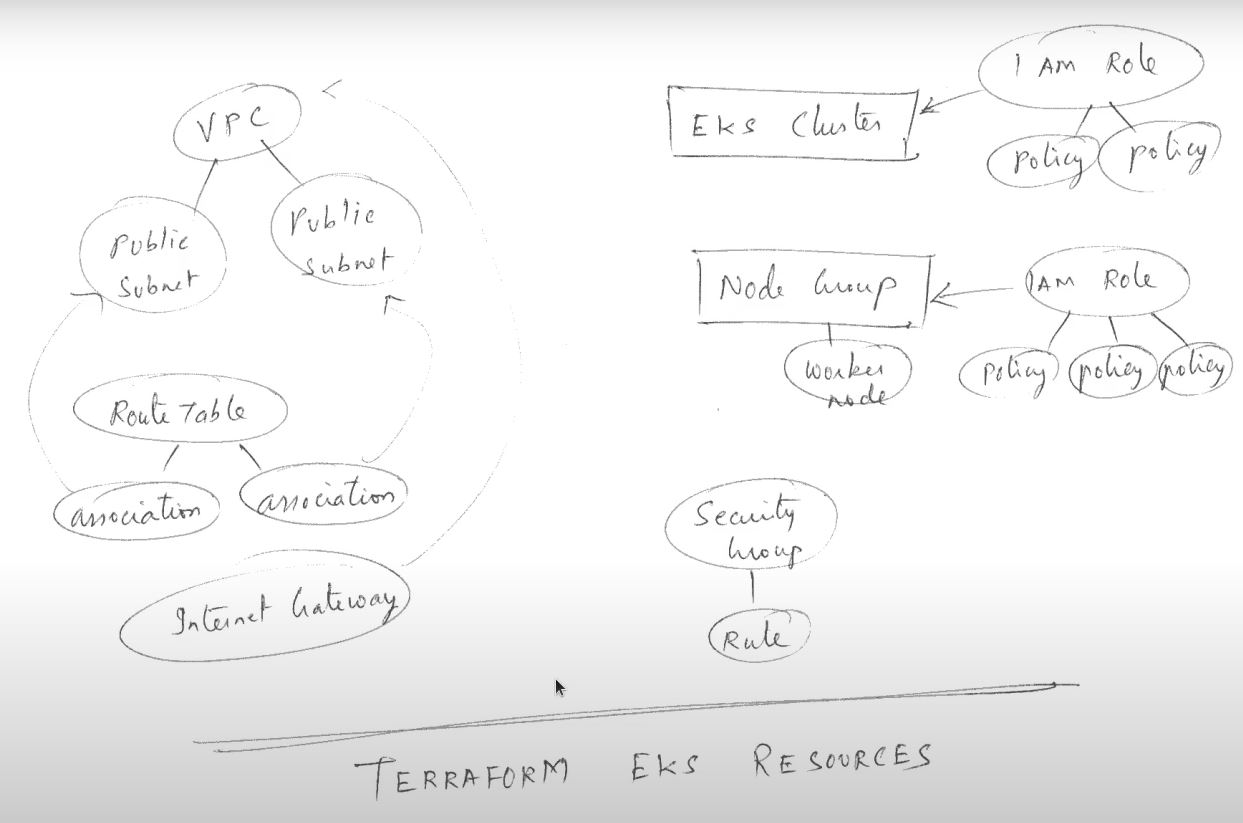 VPC
Public
Subnet
Public
Subnet
Route Table
association
association
Internet Gateway
EKS Cluster
IAM Role
policy
policy
Node Group
IAM Role
worker
node
policy
policy
policy
Security
Group
Rule
TERRAFORM EKS RESOURCES